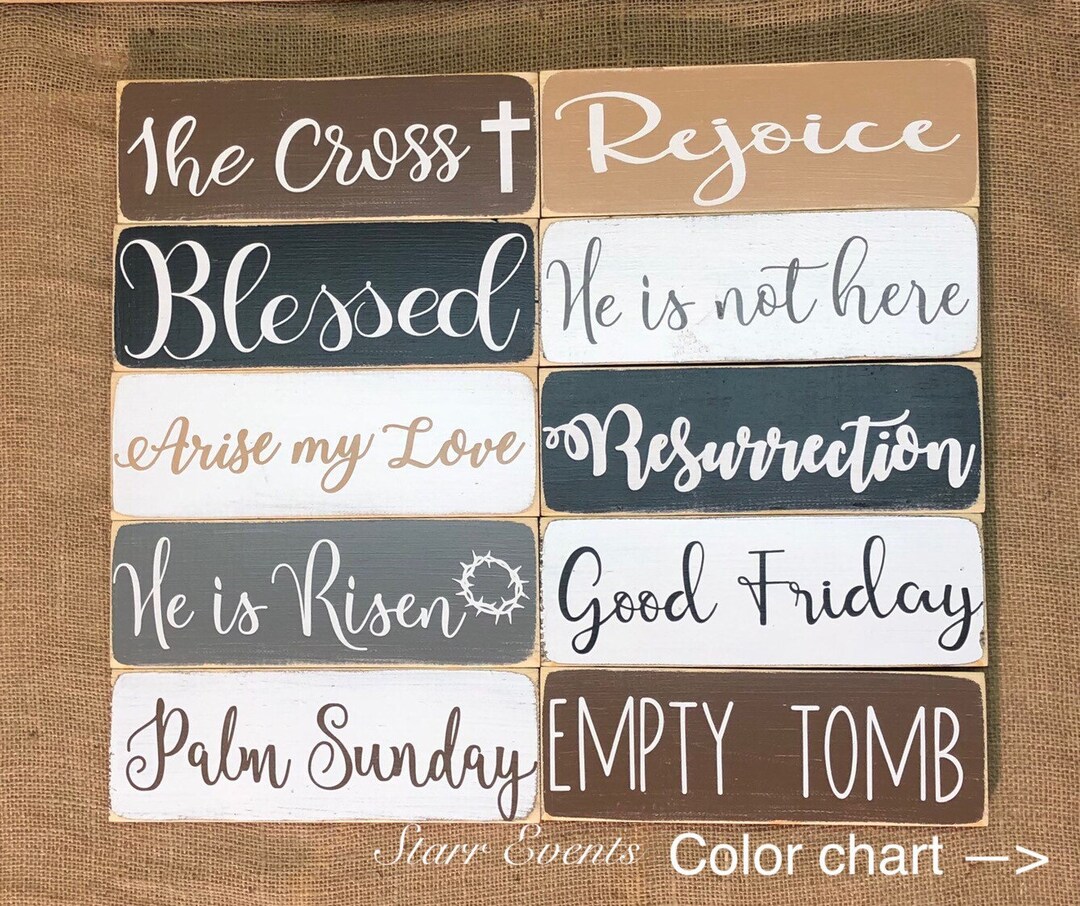 The Cross
Rejoice
Blessed
He is not here
Arise my Love
Resurrection
He is Risen
Good Friday
Palm Sunday
EMPTY TOMB
Starr Events
Color chart —>